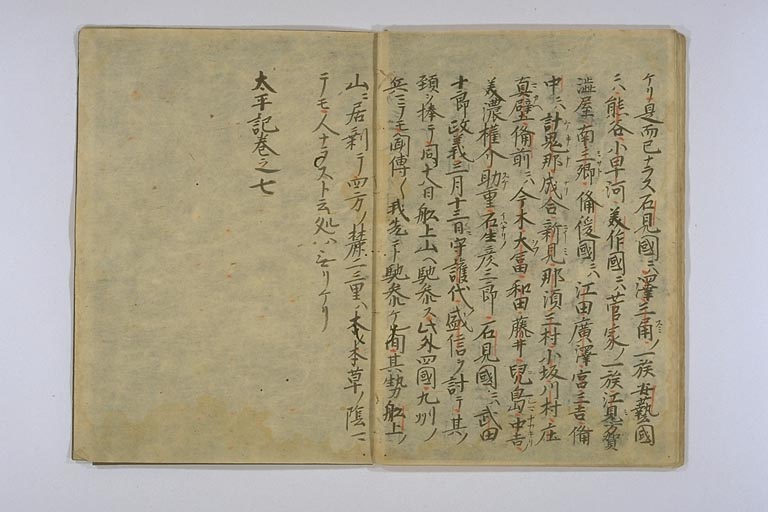 ケリ是而已ナラス石見國ニハ澤三角ノ一族安藝國
ニハ熊谷小早河美作國ニハ菅家ノ一族江見芳賀
澁屋南三郷備後國ニハ江田廣澤宮三吉備
中ニハ計鬼那成合新見那須三村小坂川村庄
真壁備前ニハ今木大冨和田藤井兒島中吉
美濃權介助重石生彦三郎石見國ニハ武田
十郎政義三月十三日守護代盛信ヲ討テ其ノ
頚ヲ捧テ同十八日舩上山ヘ馳参ス此外四國九州ノ
兵ニテモ聞傳ヘ我先ニト馳参ケル間其勢舩上ノ
山ニ居剰テ四方ノ麓二三里ハ木本草ノ陰ニ
テモ人ナラスト云処ハ無リケリ
太平記巻之七